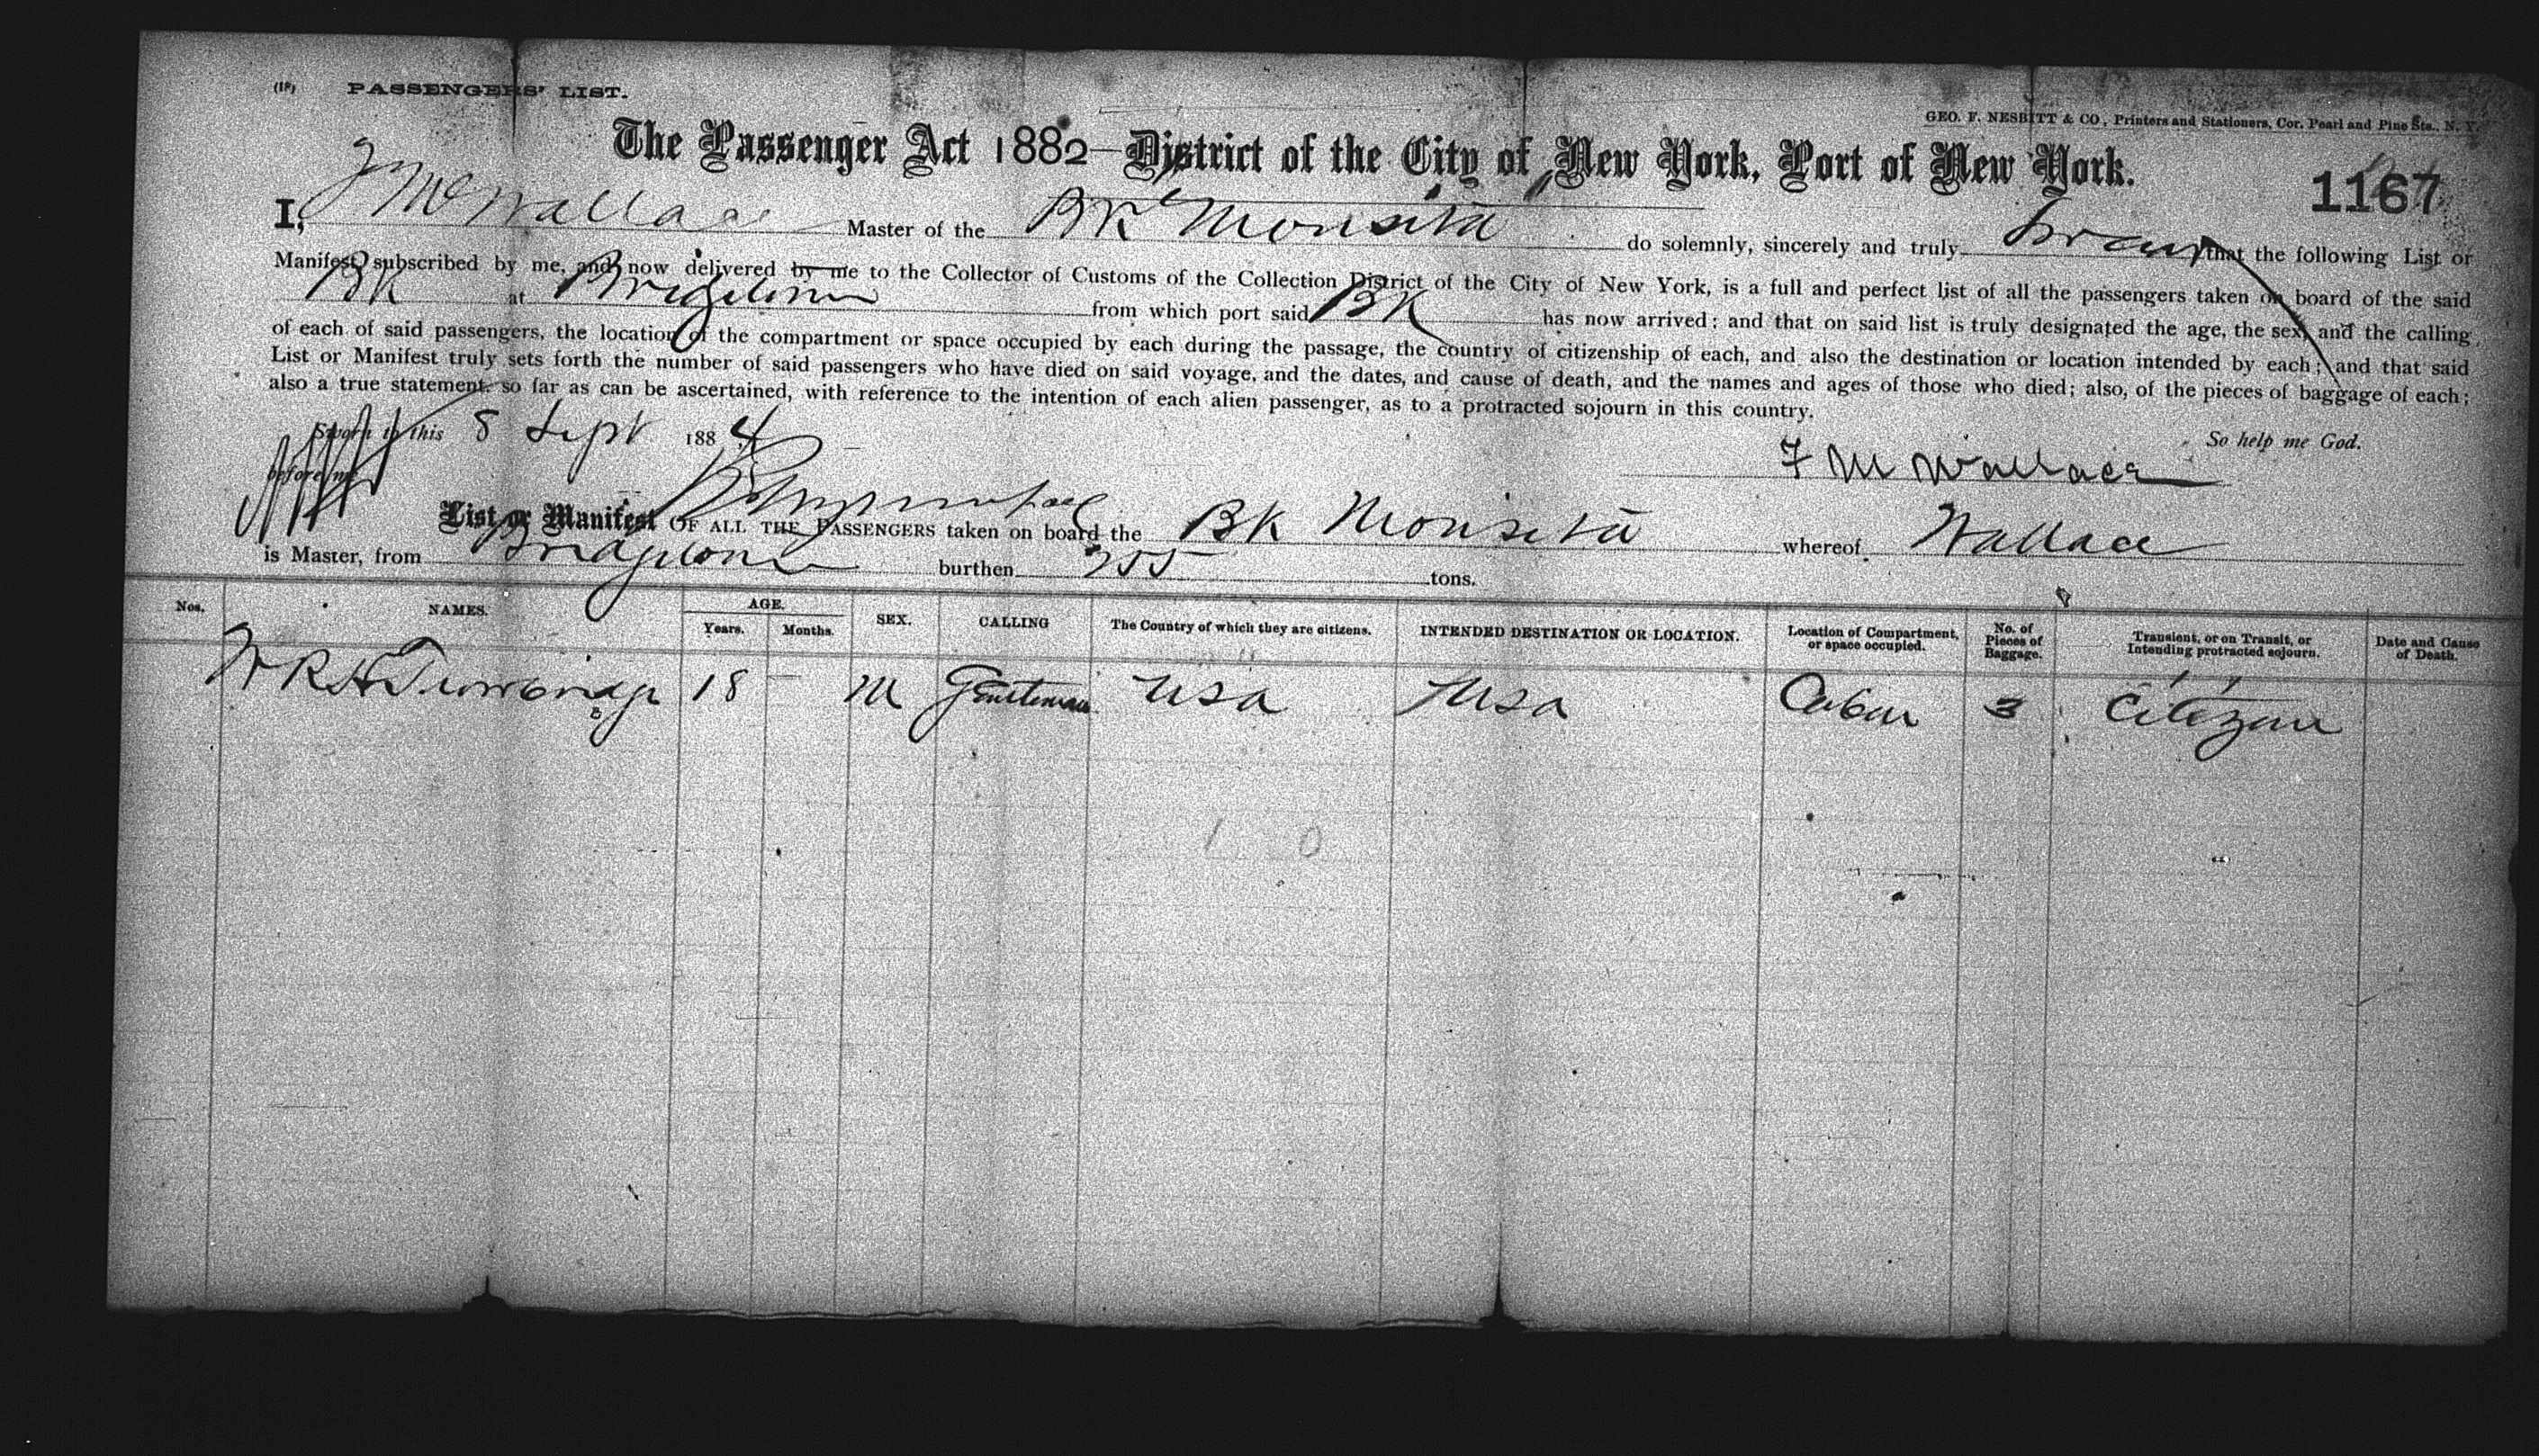 (18) PASSENGERS' LIST.
GEO. F. NESBITT & CO, Printers and Stationers, Cor. Pearl and Pine Sts., N. Y.
The Passenger Act 1882—District of the City of New York, Port of New York.
1167
I, F M Wallace Master of the BK Monsita do solemnly, sincerely and truly swear that the following List or
Manifest, subscribed by me, and now delivered by me to the Collector of Customs of the Collection District of the City of New York, is a full and perfect list of all the passengers taken on board of the said
BK at Bridgetown from which port said BK has now arrived; and that on said list is truly designated the age, the sex, and the calling
of each of said passengers, the location of the compartment or space occupied by each during the passage, the country of citizenship of each, and also the destination or location intended by each; and that said
List or Manifest truly sets forth the number of said passengers who have died on said voyage, and the dates, and cause of death, and the names and ages of those who died; also, of the pieces of baggage of each;
also a true statement, so far as can be ascertained, with reference to the intention of each alien passenger, as to a protracted sojourn in this country.
Sworn to this 8 Sept 1884
So help me God.
before me
F M Wallace
List or Manifest OF ALL THE PASSENGERS taken on board the BK Monsita whereof Wallace
is Master, from Bridgetown burthen 255 tons.
Nos. NAMES. AGE. Years. Months. SEX. CALLING The Country of which they are citizens. INTENDED DESTINATION OR LOCATION. Location of Compartment, or space occupied. No. of Pieces of Baggage. Transient, or on Transit, or Intending protracted sojourn. Date and Cause of Death.
W R H 18 — M Gentleman USA USA Cabin 3 Citizen
1 0